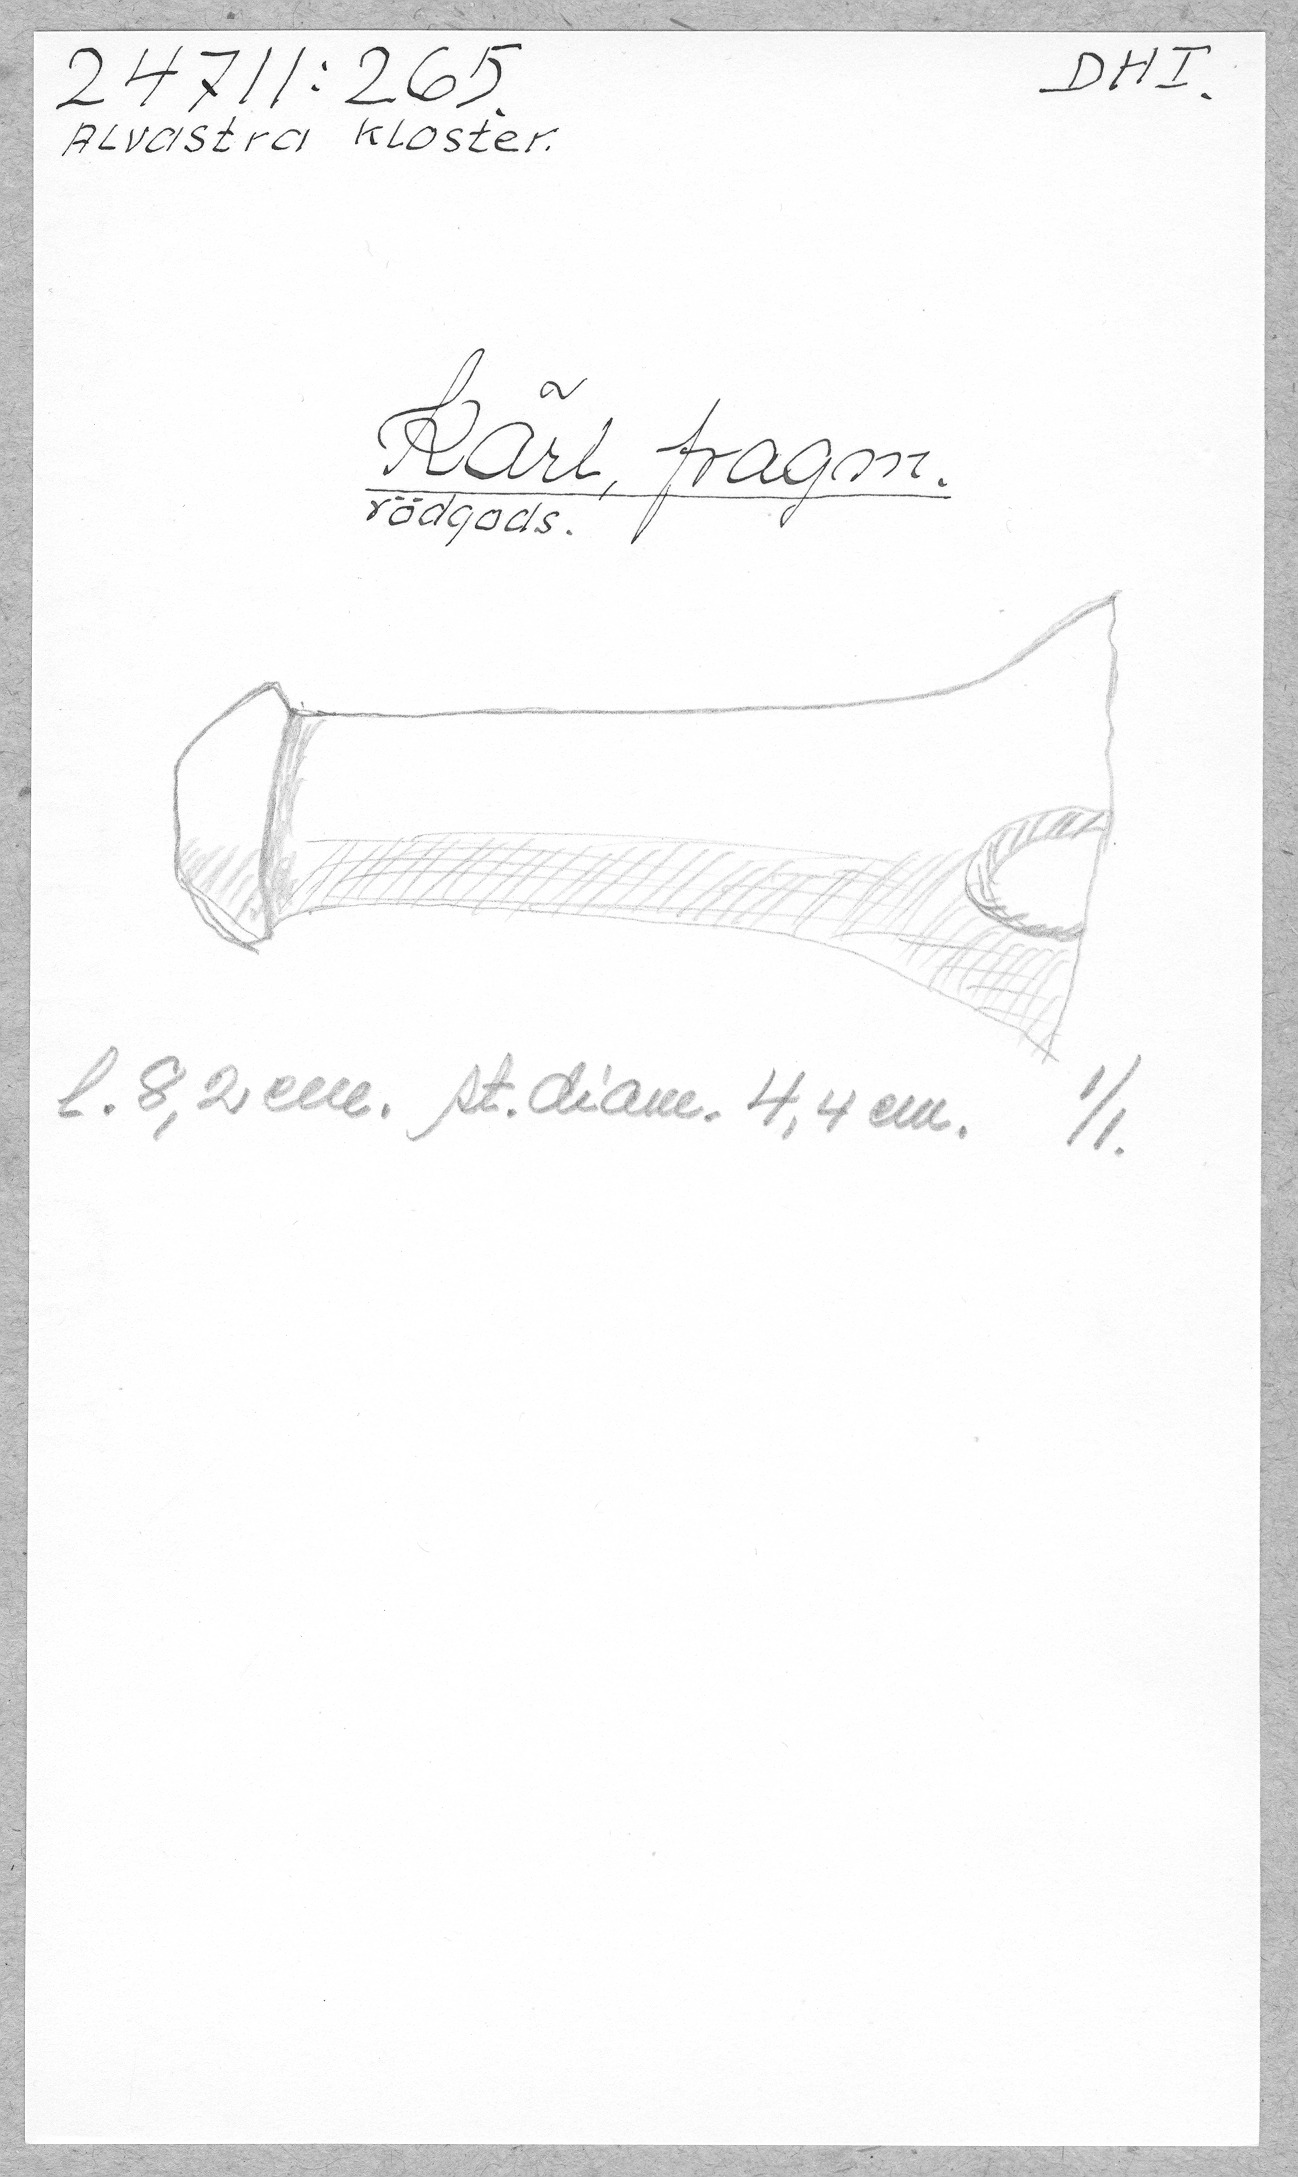 24711:265.
DHI.
Alvastra kloster.
Kärl, fragm.
rödgods.
l. 8,2 cm. st. diam. 4,4 cm. 1/1.